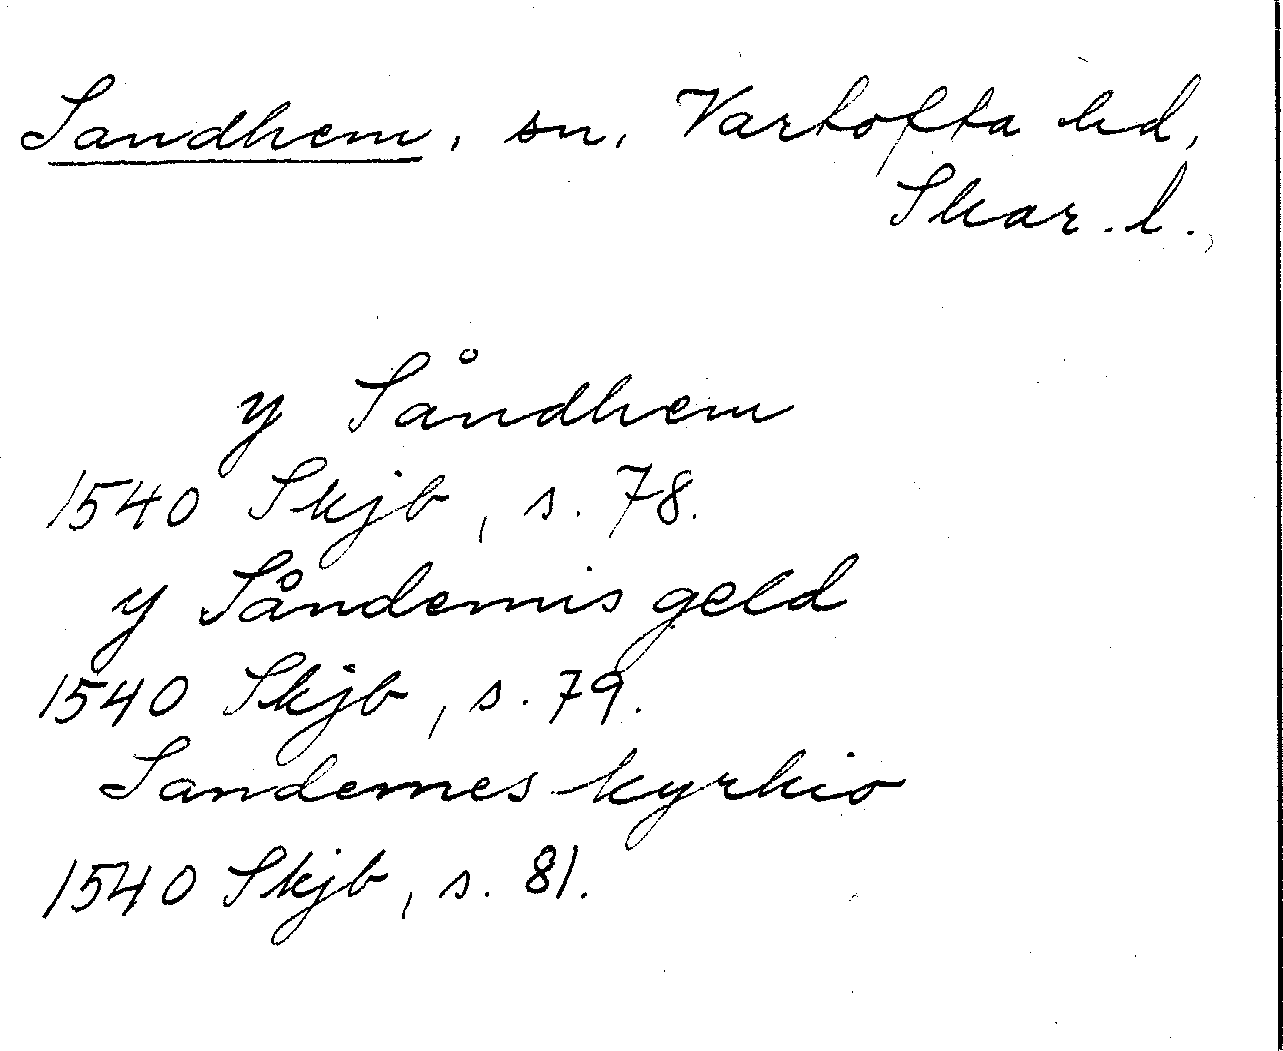 Sandhem, sn, Vartofta hd,
Skar. l.
y Såndhem
1540 Skjb, s. 78.
y Såndemis geld
1540 Skjb, s. 79.
Sandemes kyrkio
1540 Skjb, s. 81.